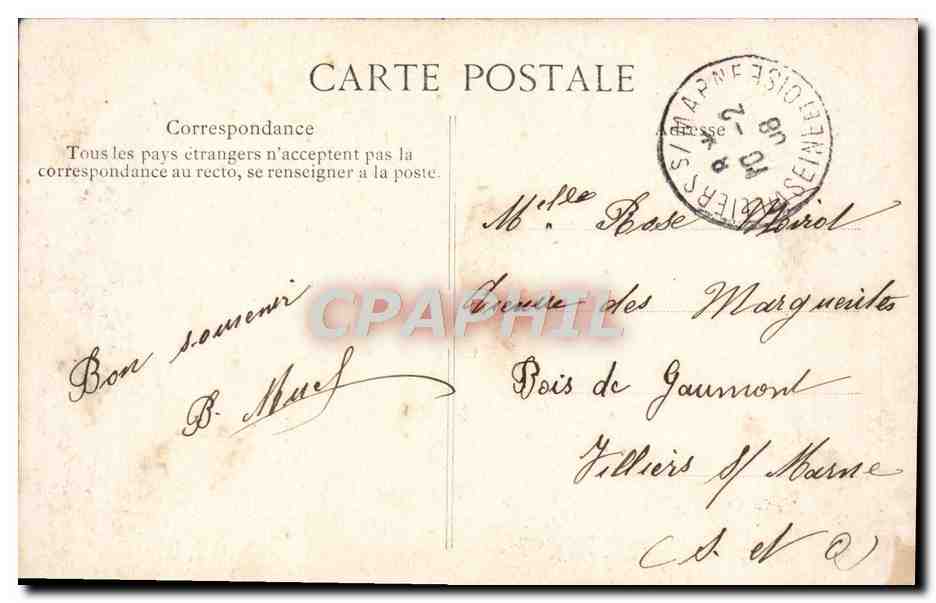 CARTE POSTALE
Correspondance
Tous les pays étrangers n'acceptent pas la
correspondance au recto, se renseigner a la poste.
Bon souvenir
B.
Adresse
VILLIERS S/MARNE (SEINE ET OISE)
8 * 10 -2 08
Melle Rose
Avenue des Marguerites
Bois de Gaumont
Villiers s/ Marne
(S. et O)
CPAPHIL